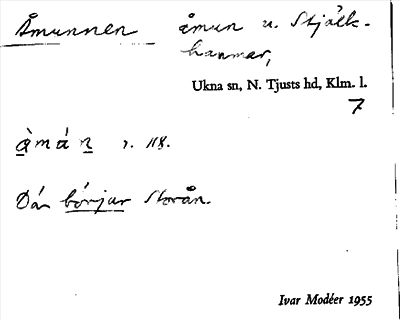 Åmunnen åmun n. Stjälk-
hammar,
Ukna sn, N. Tjusts hd, Klm. l.
7
ǹmán 2. 118.
Dár bórjar Storån.
Ivar Modéer 1955